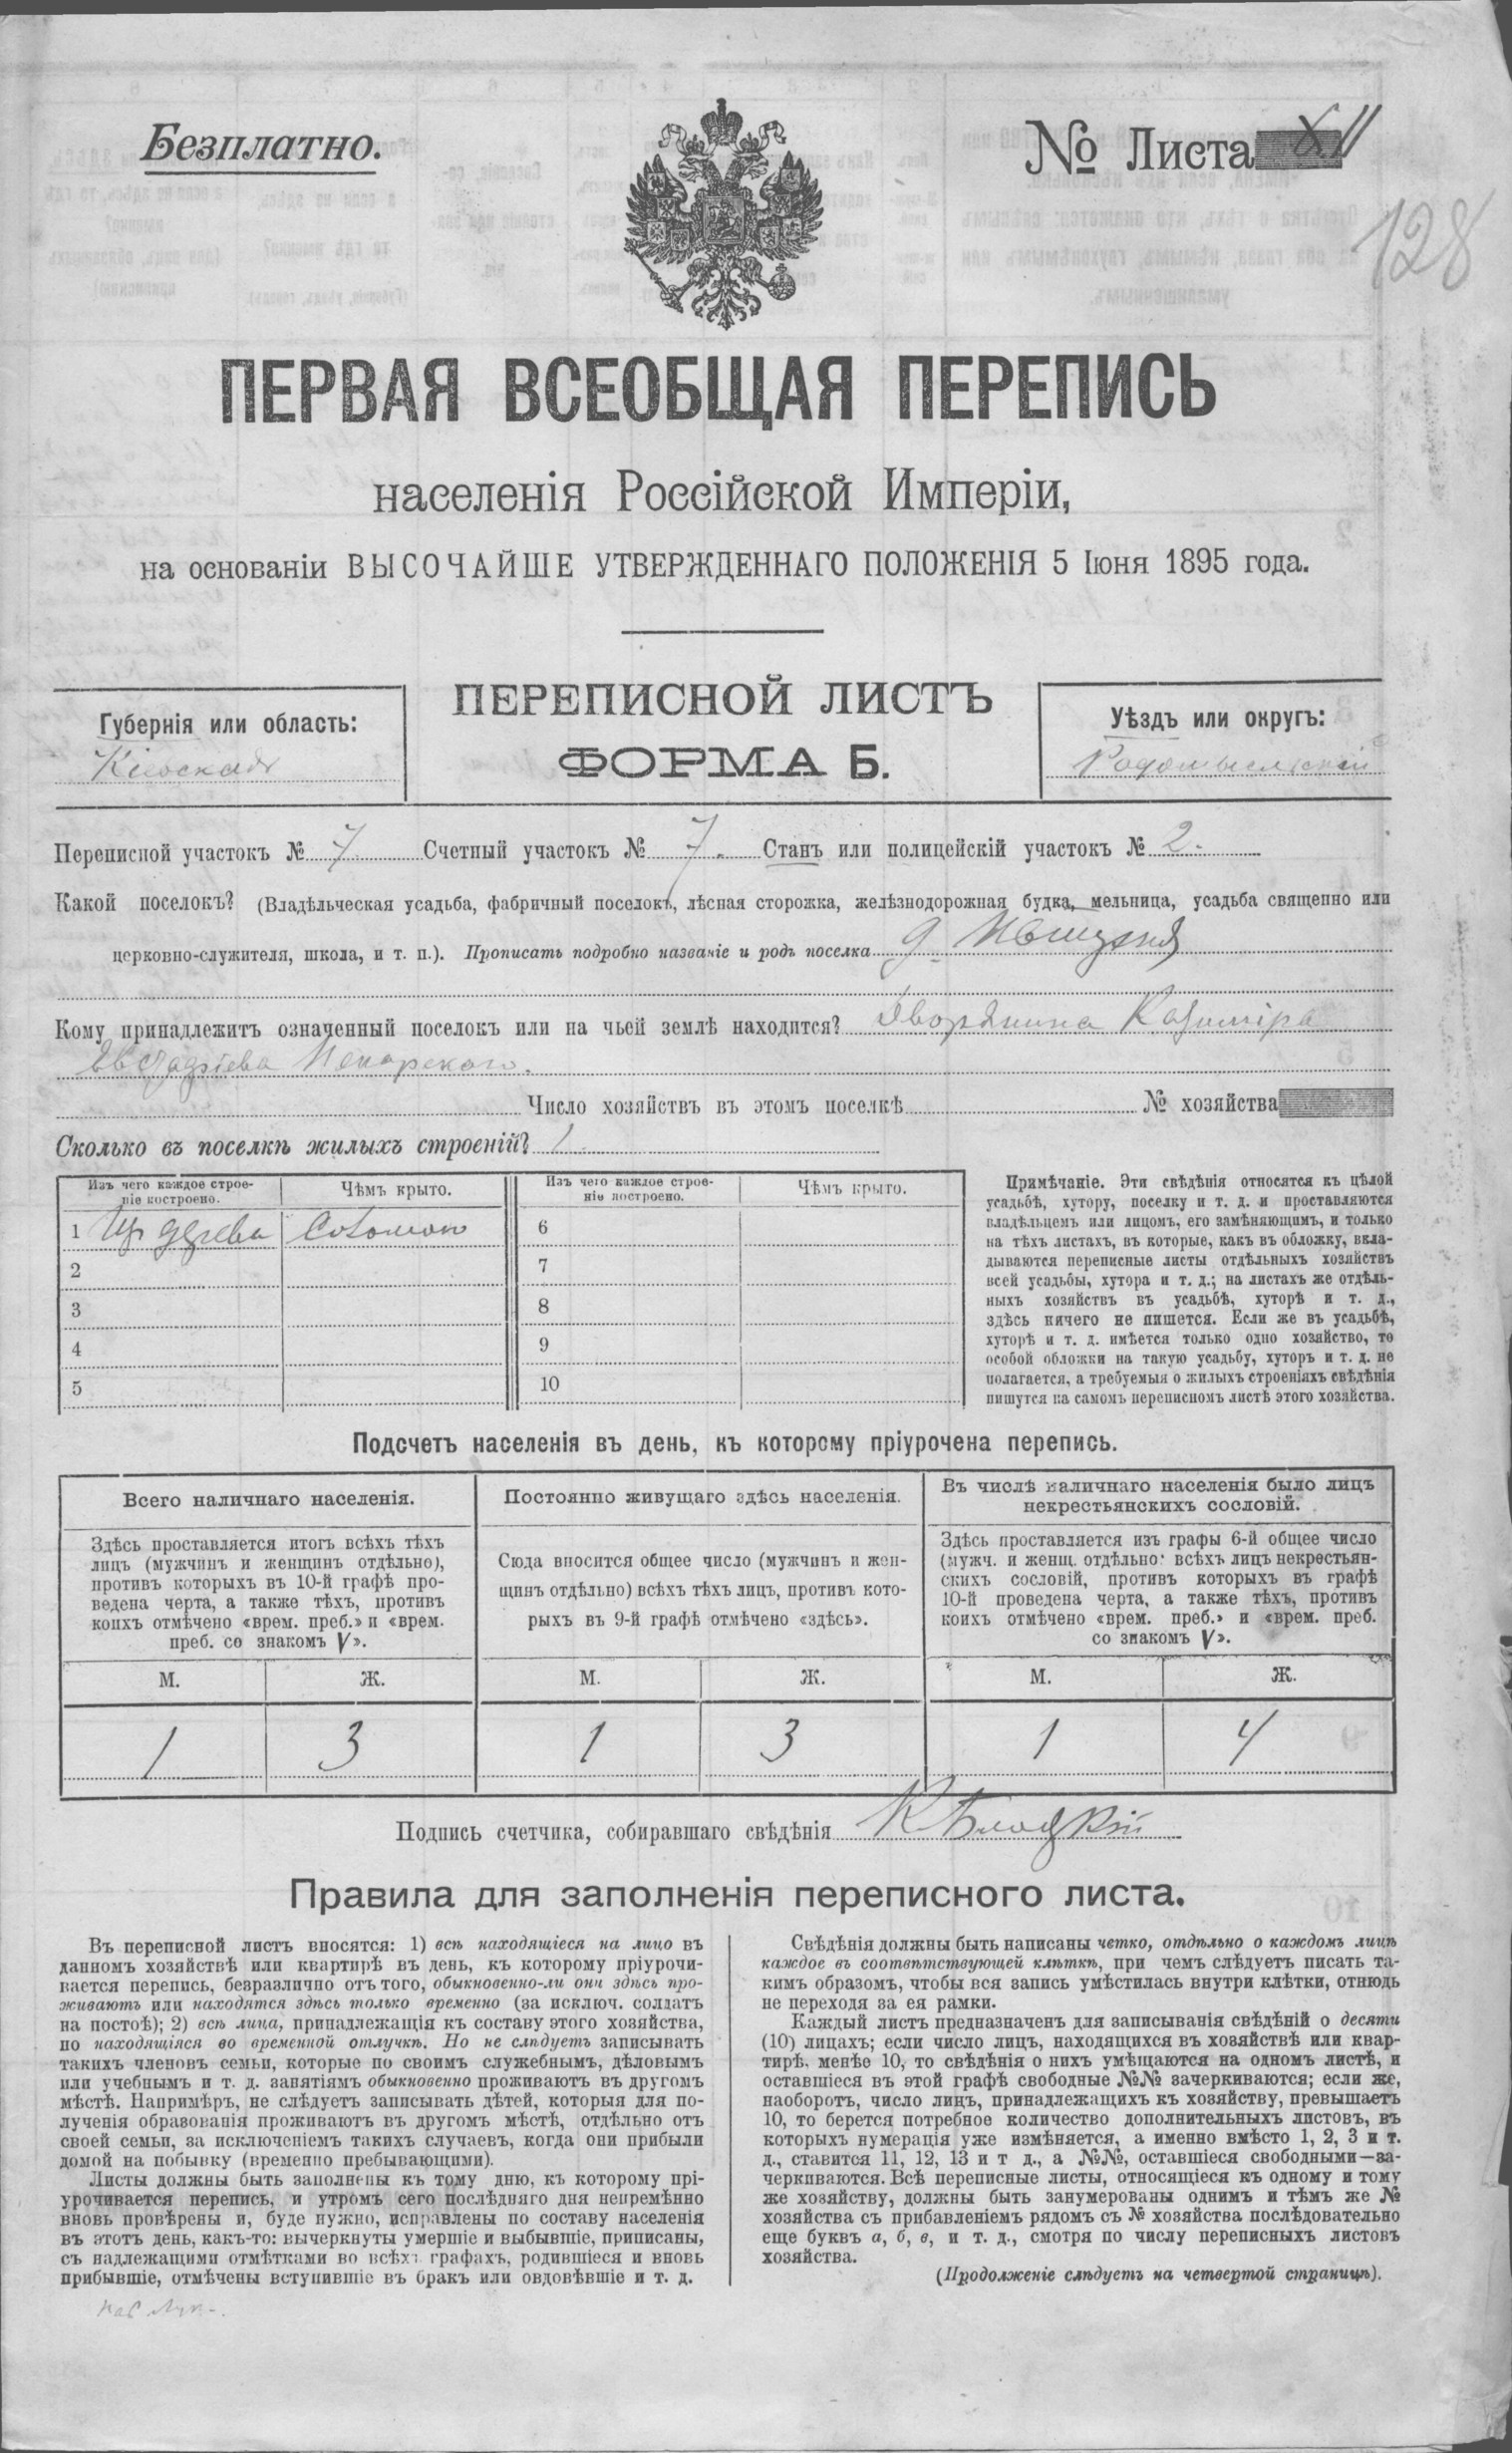 Безплатно.
№ Листа
128
ПЕРВАЯ ВСЕОБЩАЯ ПЕРЕПИСЬ
населенія Россійской Имперіи,
на основаніи ВЫСОЧАЙШЕ УТВЕРЖДЕННАГО ПОЛОЖЕНІЯ 5 Іюня 1895 года.
ПЕРЕПИСНОЙ ЛИСТЪ
ФОРМА Б.
Губернія или область:
Кіевская
Уѣздъ или округъ:
Радомысльскій
Переписной участокъ № 7. Счетный участокъ № 7. Станъ или полицейскій участокъ № 2.
Какой поселокъ? (Владѣльческая усадьба, фабричный поселокъ, лѣсная сторожка, желѣзнодорожная будка, мельница, усадьба священно или
церковно-служителя, школа, и т. п.). Прописать подробно названіе и родъ поселка д.
Кому принадлежитъ означенный поселокъ или на чьей землѣ находится? Дворянина Казиміра
Пекарского.
Число хозяйствъ въ этомъ поселкѣ № хозяйства
Сколько въ поселкѣ жилыхъ строеній? 1
Изъ чего каждое строе-
ніе построено.
Чѣмъ крыто.
Изъ чего каждое строе-
ніе построено.
Чѣмъ крыто.
1 Изъ дерева Соломою
6
2
7
3
8
4
9
5
10
Примѣчаніе. Эти свѣдѣнія относятся къ цѣлой
усадьбѣ, хутору, поселку и т. д. и проставляются
владѣльцемъ или лицомъ, его замѣняющимъ, и только
на тѣхъ листахъ, въ которые, какъ въ обложку, вкла-
дываются переписные листы отдѣльныхъ хозяйствъ
всей усадьбы, хутора и т. д.; на листахъ же отдѣль-
ныхъ хозяйствъ въ усадьбѣ, хуторѣ и т. д.,
здѣсь ничего не пишется. Если же въ усадьбѣ,
хуторѣ и т. д. имѣется только одно хозяйство, то
особой обложки на такую усадьбу, хуторъ и т. д. не
полагается, а требуемыя о жилыхъ строеніяхъ свѣдѣнія
пишутся на самомъ переписномъ листѣ этого хозяйства.
Подсчетъ населенія въ день, къ которому пріурочена перепись.
Всего наличнаго населенія.
Здѣсь проставляется итогъ всѣхъ тѣхъ
лицъ (мужчинъ и женщинъ отдѣльно),
противъ которыхъ въ 10-й графѣ про-
ведена черта, а также тѣхъ, противъ
коихъ отмѣчено «врем. преб.» и «врем.
преб. со знакомъ V».
Постоянно живущаго здѣсь населенія.
Сюда вносится общее число (мужчинъ и жен-
щинъ отдѣльно) всѣхъ тѣхъ лицъ, противъ кото-
рыхъ въ 9-й графѣ отмѣчено «здѣсь».
Въ числѣ наличнаго населенія было лицъ
некрестьянскихъ сословій.
Здѣсь проставляется изъ графы 6-й общее число
(мужч. и женщ. отдѣльно) всѣхъ лицъ некрестьян-
скихъ сословій, противъ которыхъ въ графѣ
10-й проведена черта, а также тѣхъ, противъ
коихъ отмѣчено «врем. преб.» и «врем. преб.
со знакомъ V».
М. Ж. М. Ж. М. Ж.
1 3 1 3 1 4
Подпись счетчика, собиравшаго свѣдѣнія
Правила для заполненія переписного листа.
Въ переписной листъ вносятся: 1) всѣ находящіеся на лицо въ
данномъ хозяйствѣ или квартирѣ въ день, къ которому пріурочи-
вается перепись, безразлично отъ того, обыкновенно-ли они здѣсь про-
живаютъ или находятся здѣсь только временно (за исключ. солдатъ
на постоѣ); 2) всѣ лица, принадлежащія къ составу этого хозяйства,
но находящіяся во временной отлучкѣ. Но не слѣдуетъ записывать
такихъ членовъ семьи, которые по своимъ служебнымъ, дѣловымъ
или учебнымъ и т. д. занятіямъ обыкновенно проживаютъ въ другомъ
мѣстѣ. Напримѣръ, не слѣдуетъ записывать дѣтей, которыя для по-
лученія образованія проживаютъ въ другомъ мѣстѣ, отдѣльно отъ
своей семьи, за исключеніемъ такихъ случаевъ, когда они прибыли
домой на побывку (временно пребывающими).
Листы должны быть заполнены къ тому дню, къ которому прі-
урочивается перепись, и утромъ сего послѣдняго дня непремѣнно
вновь провѣрены и, буде нужно, исправлены по составу населенія
въ этотъ день, какъ-то: вычеркнуты умершіе и выбывшіе, приписаны,
съ надлежащими отмѣтками во всѣхъ графахъ, родившіеся и вновь
прибывшіе, отмѣчены вступившіе въ бракъ или овдовѣвшіе и т. д.
Свѣдѣнія должны быть написаны четко, отдѣльно о каждомъ лицѣ
каждое въ соотвѣтствующей клѣткѣ, при чемъ слѣдуетъ писать та-
кимъ образомъ, чтобы вся запись умѣстилась внутри клѣтки, отнюдь
не переходя за ея рамки.
Каждый листъ предназначенъ для записыванія свѣдѣній о десяти
(10) лицахъ; если число лицъ, находящихся въ хозяйствѣ или квар-
тирѣ, менѣе 10, то свѣдѣнія о нихъ умѣщаются на одномъ листѣ, и
оставшіеся въ этой графѣ свободные №№ зачеркиваются; если же,
наоборотъ, число лицъ, принадлежащихъ къ хозяйству, превышаетъ
10, то берется потребное количество дополнительныхъ листовъ, въ
которыхъ нумерація уже измѣняется, а именно вмѣсто 1, 2, 3 и т.
д., ставится 11, 12, 13 и т д., а №№, оставшіеся свободными—за-
черкиваются. Всѣ переписные листы, относящіеся къ одному и тому
же хозяйству, должны быть занумерованы однимъ и тѣмъ же №
хозяйства съ прибавленіемъ рядомъ съ № хозяйства послѣдовательно
еще буквъ а, б, в, и т. д., смотря по числу переписныхъ листовъ
хозяйства.
(Продолженіе слѣдуетъ на четвертой страницѣ).